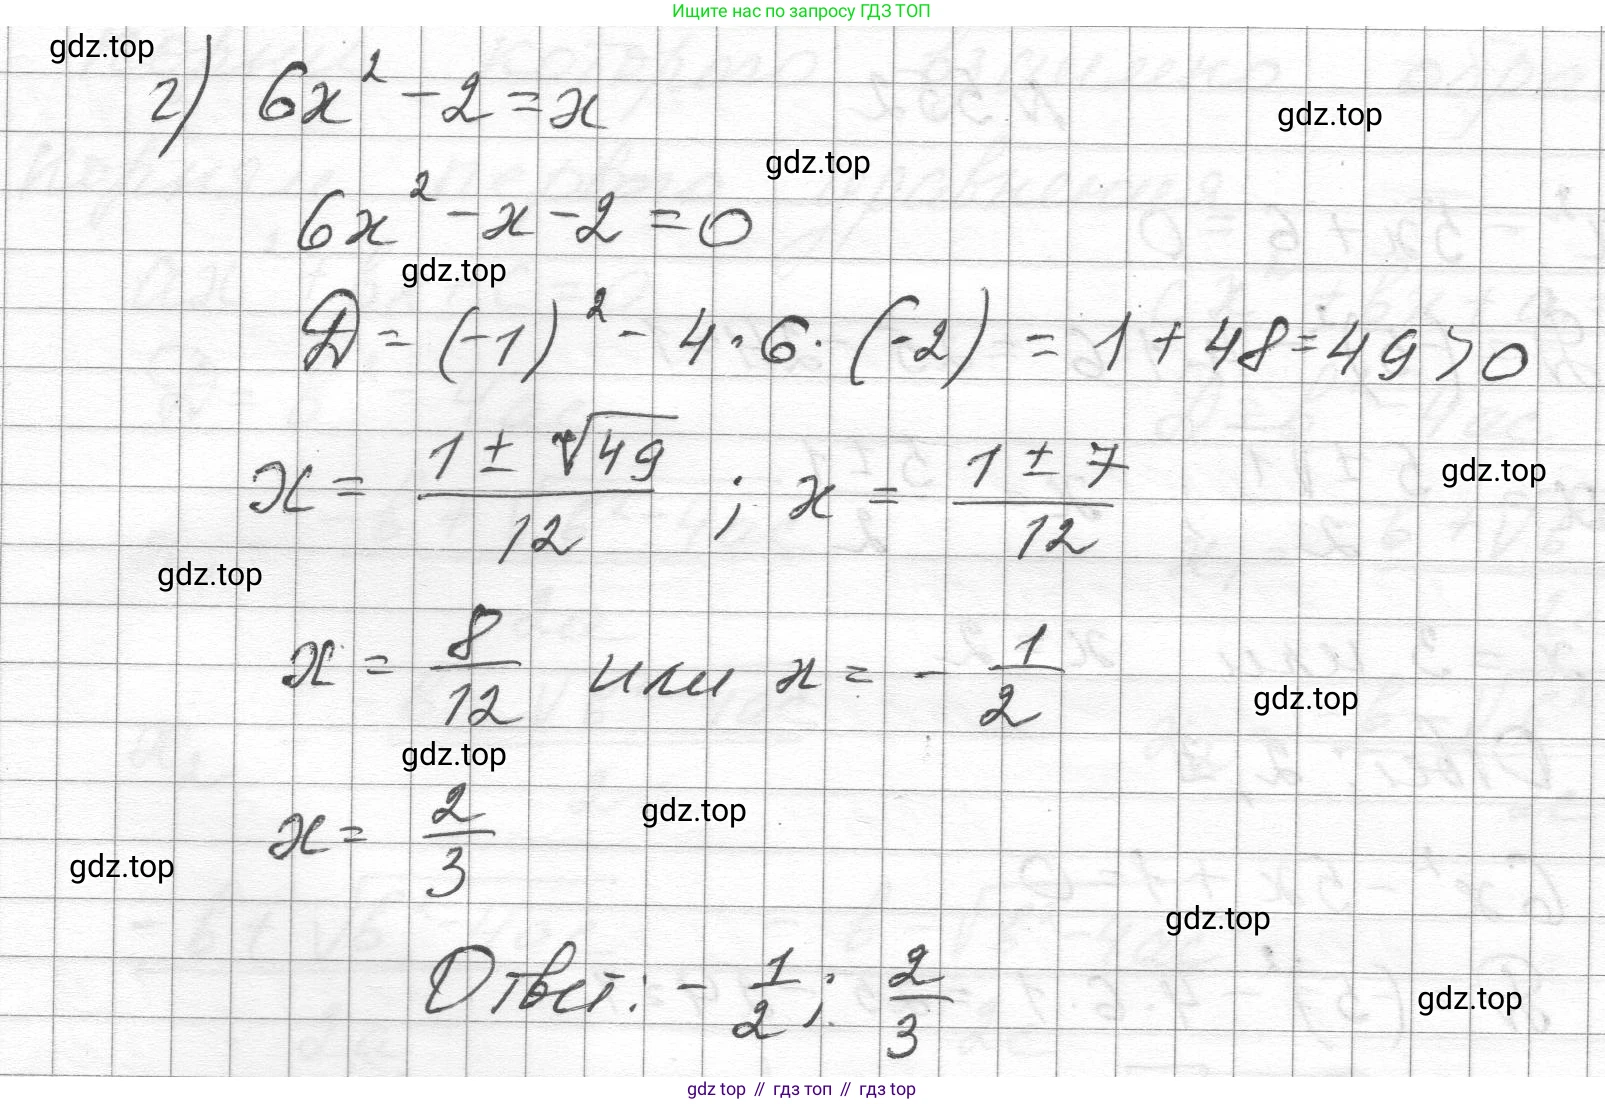 Ищите нас по запросу ГДЗ ТОП
gdz.top
2) 6x² - 2 = x
gdz.top
gdz.top
6x² - x - 2 = 0
gdz.top
D = (-1)² - 4 · 6 · (-2) = 1 + 48 = 49 > 0
x = (1 ± √49)/12 ; x = (1 ± 7)/12
gdz.top
gdz.top
x = 8/12 или x = - 1/2
gdz.top
gdz.top
x = 2/3
gdz.top
gdz.top
gdz.top
Ответ: - 1/2 ; 2/3
gdz.top
gdz top // гдз топ // gdz top